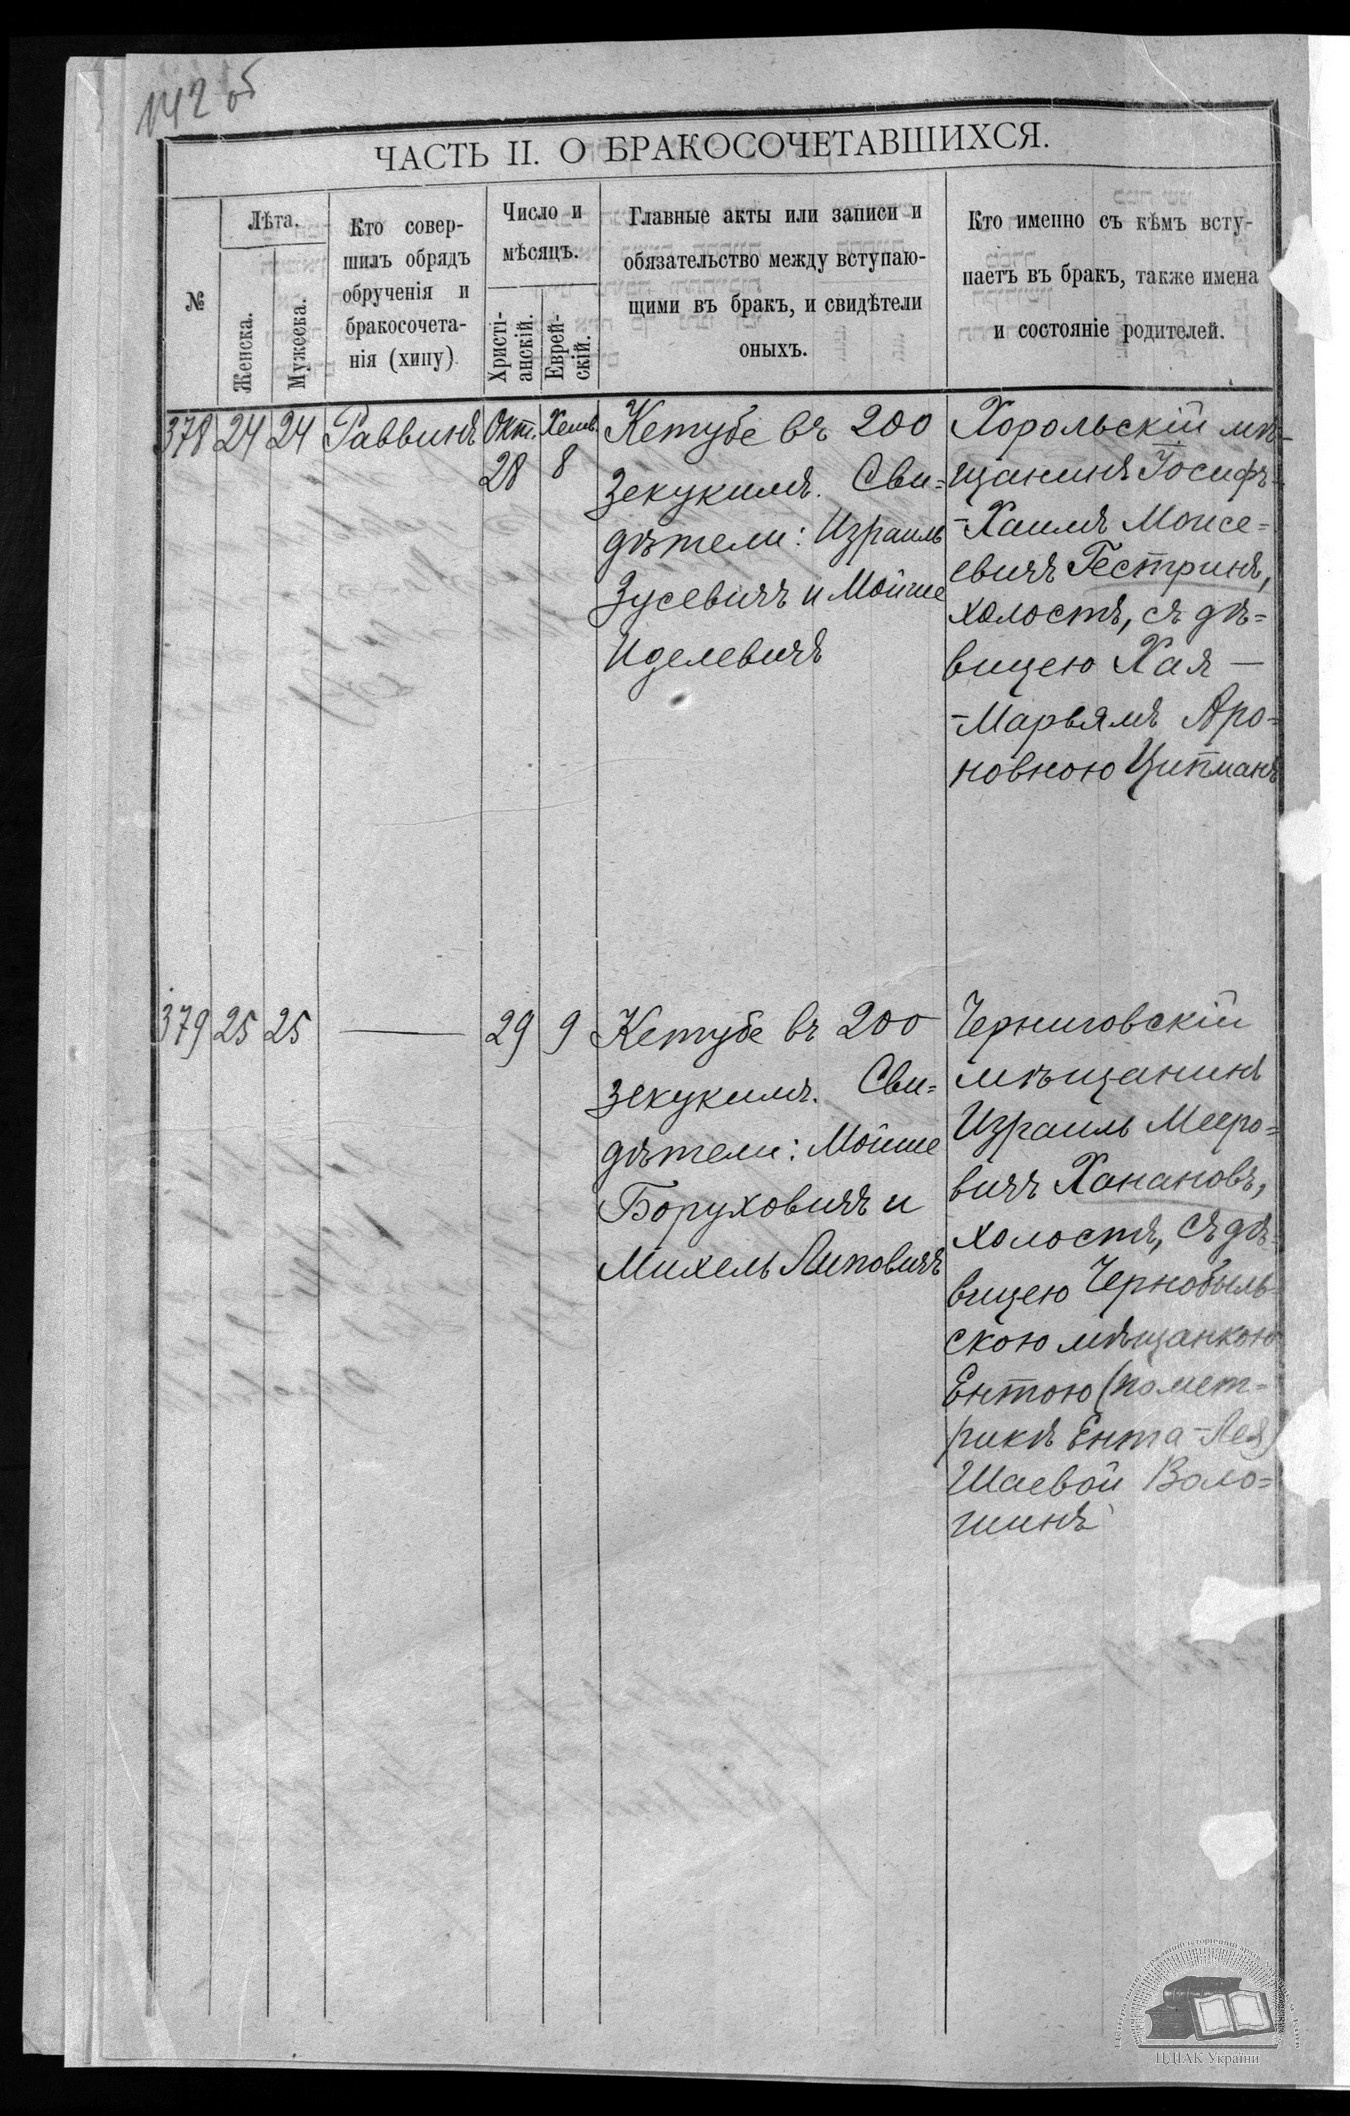 142 об
ЧАСТЬ II. О БРАКОСОЧЕТАВШИХСЯ.
№
Лѣта.
Женска.
Мужеска.
Кто совер-
шилъ обрядъ
обрученія и
бракосочета-
нія (хипу)
Число и
мѣсяцъ.
Христі-
анскій.
Еврей-
скій.
Главные акты или записи и
обязательство между вступаю-
щими въ бракъ, и свидѣтели
оныхъ.
Кто именно съ кѣмъ всту-
паетъ въ бракъ, также имена
и состояніе родителей.
378 24 24 Раввинъ Окт. Хешв.
28 8
Кетубе въ 200
зекукимъ. Сви=
дѣтели: Израиль
Зусевичъ и Мойше
Иделевичъ
Хорольскій мѣ-
щанинъ Іосифъ-
-Хаимъ Моисе=
евичъ Гестринъ,
холостъ, съ дѣ=
вицею Хая-
-Марьямъ Аро=
новною Ципманъ
379 25 25 — 29 9
Кетубе въ 200
зекукимъ. Сви=
дѣтели: Мойше
Боруховичъ и
Михель Липовичъ
Черниговскій
мѣщанинъ
Израиль Мееро=
вичъ Ханановъ,
холостъ, съ дѣ=
вицею Чернобыль=
скою мѣщанкою
Ентою (по мет=
рикѣ Ента-Лея)
Шаевой Воло=
шинъ
ЦДІАК України